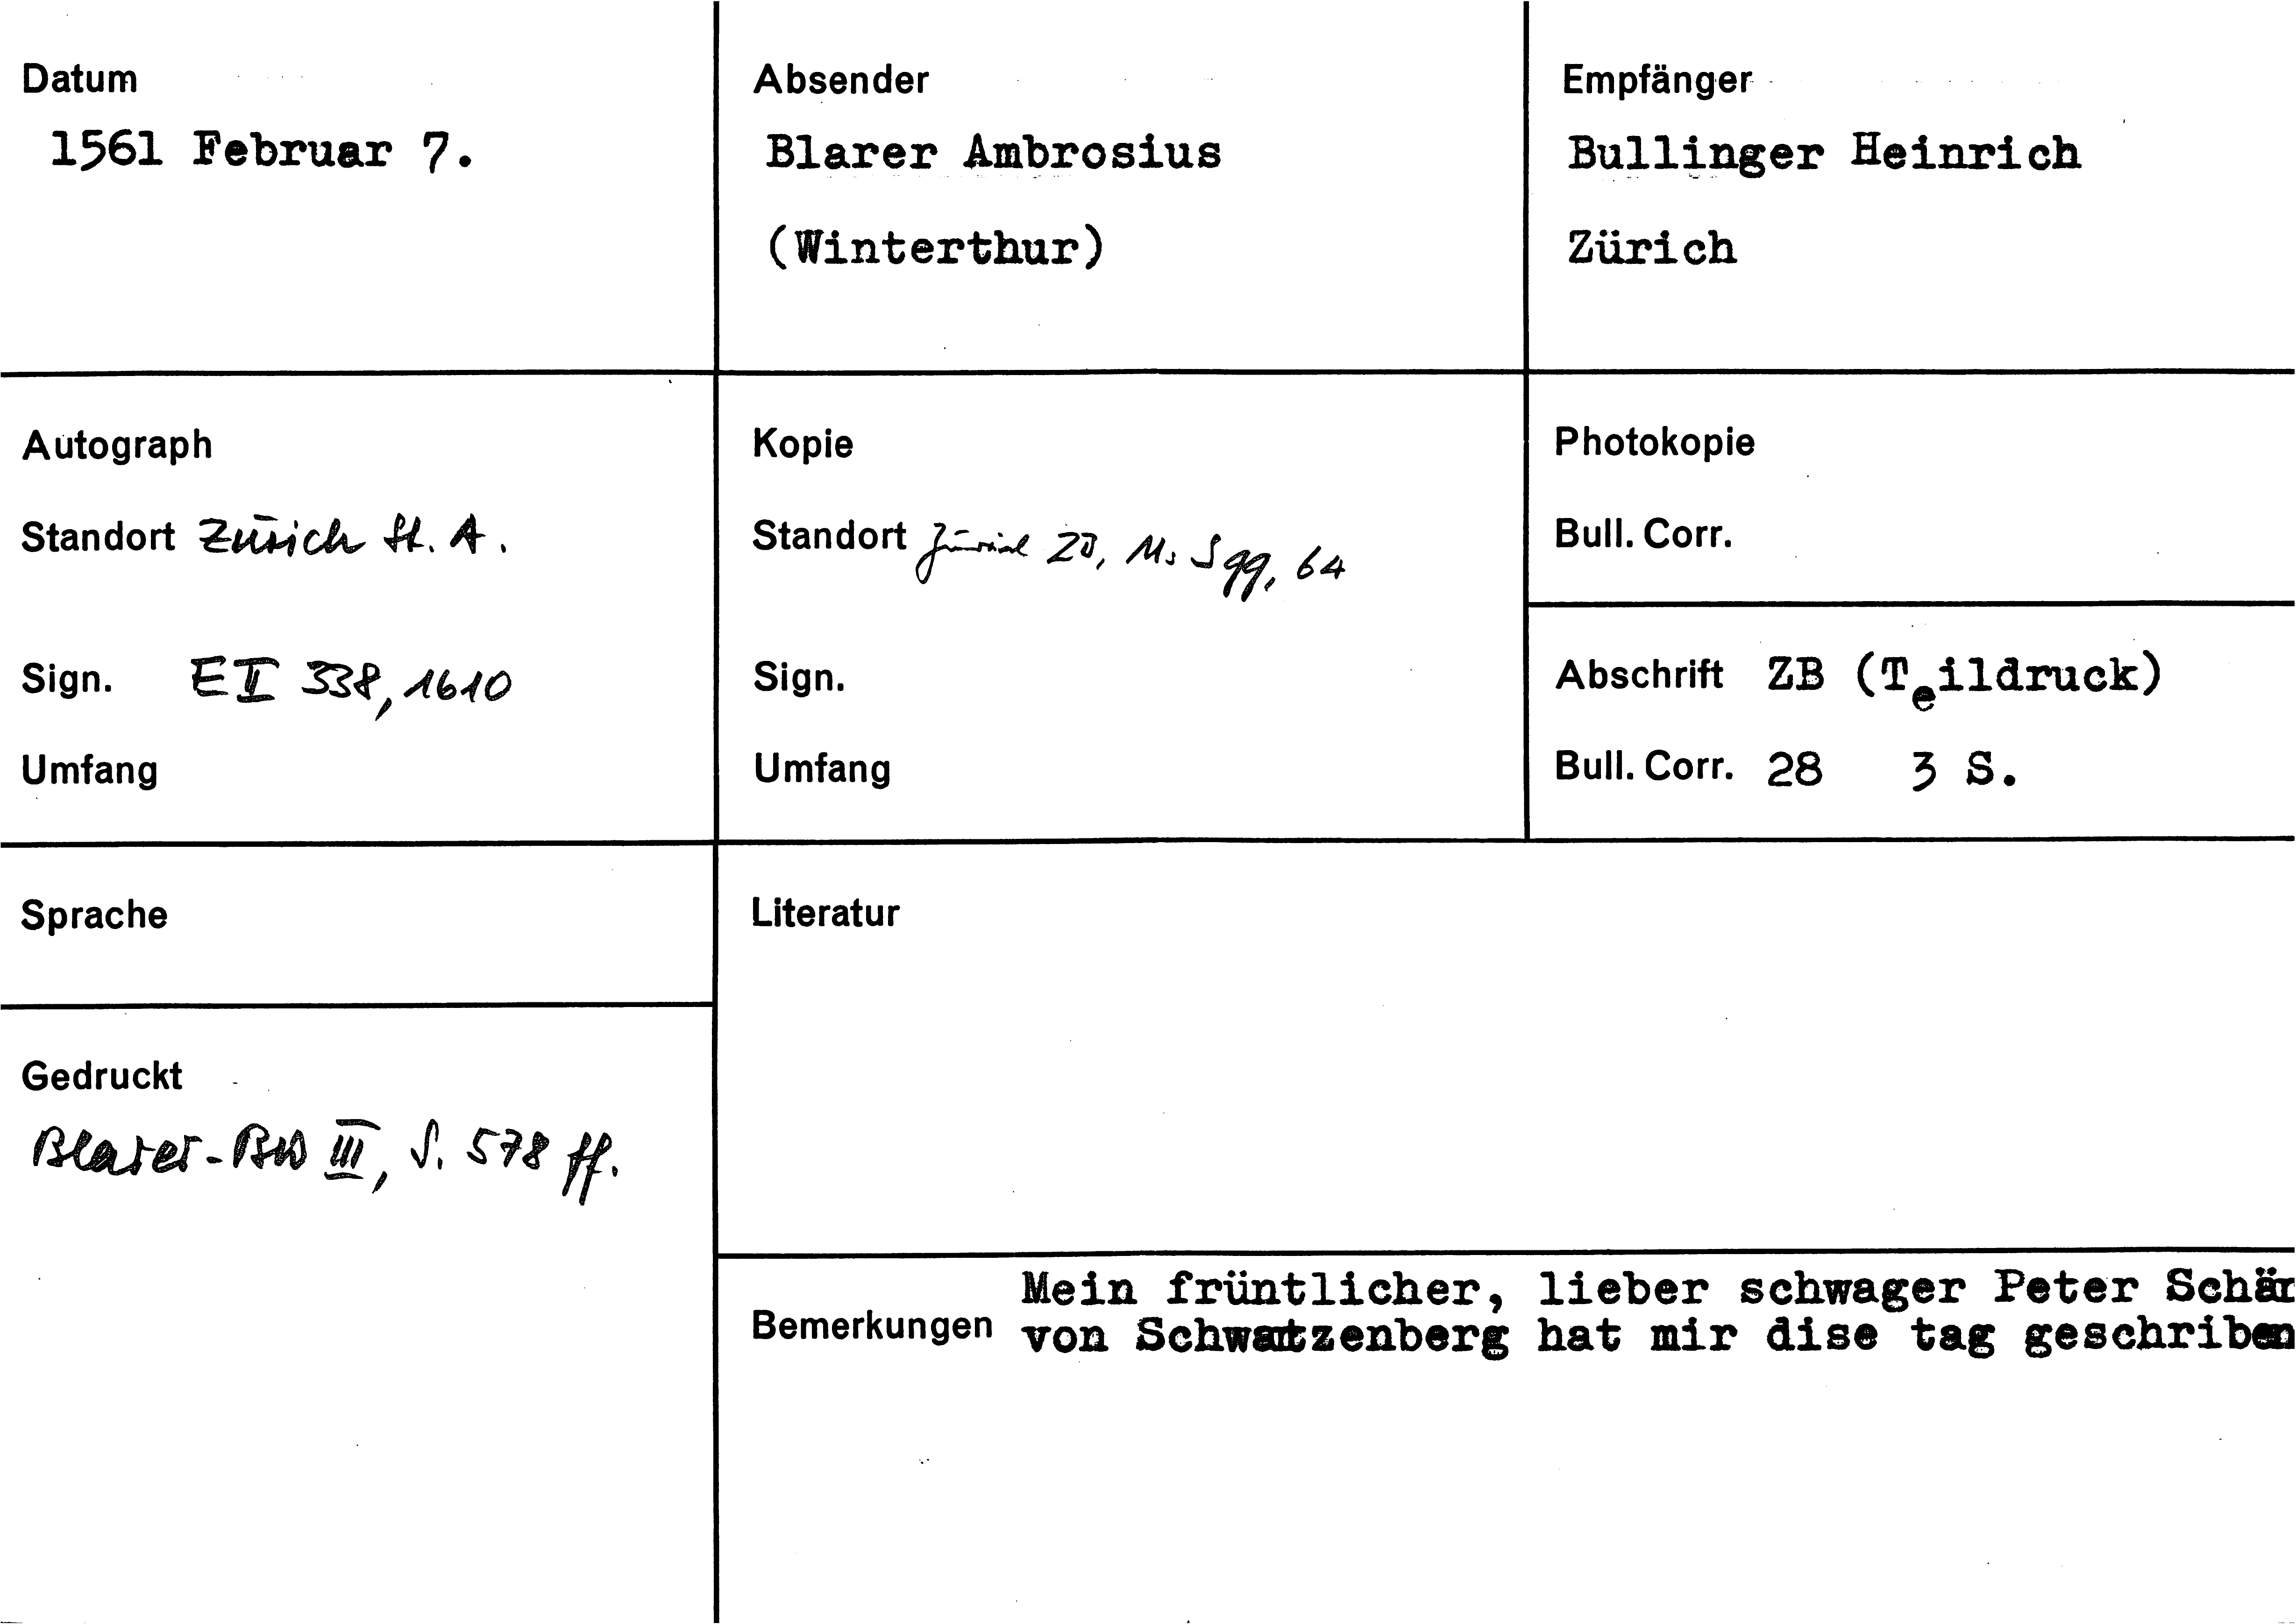 Datum
1561 Februar 7.
Absender
Blarer Ambrosius
(Winterthur)
Empfänger
Bullinger Heinrich
Zürich
Autograph
Standort Zürich St. A.
Sign. E II 338, 1610
Umfang
Kopie
Standort Zürich ZB, Ms S 99, 64
Sign.
Umfang
Photokopie
Bull. Corr.
Abschrift ZB (Teildruck)
Bull. Corr. 28 3 S.
Sprache
Gedruckt
Blarer-BW III, S. 578 ff.
Literatur
Bemerkungen
Mein früntlicher, lieber schwager Peter Schär
von Schwartzenberg hat mir dise tag geschriben